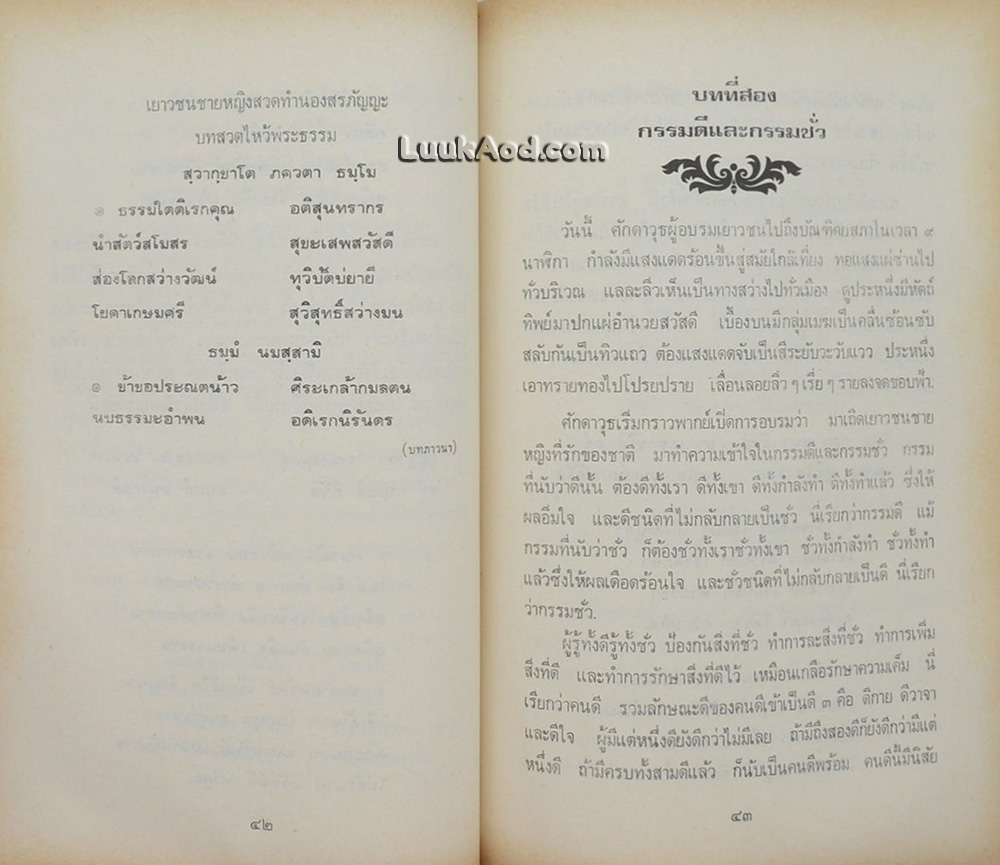 เยาวชนชายหญิงสวดทำนองสรภัญญะ
บทสวดไหว้พระธรรม
สฺวากฺขาโต ภควตา ธมฺโม
๏ ธรรมใดดิเรกคุณ อติสุนทรากร
นำสัตว์สโมสร สุขะเสพสวัสดี
ส่องโลกสว่างวัฒน์ ทุวิบัติบ่ยายี
โยคาเกษมศรี สุวิสุทธิ์สว่างมน
ธมฺมํ นมสฺสามิ
๏ ข้าขอประณตน้าว ศิระเกล้ากมลตน
นบธรรมะอำพน อดิเรกนิรันดร
(บทภาวนา)
๔๒
LuukAod.com
บทที่สอง
กรรมดีและกรรมชั่ว
วันนี้ ศักดาวุธผู้อบรมเยาวชนไปถึงบัณฑิตยสภาในเวลา ๙
นาฬิกา กำลังมีแสงแดดร้อนขึ้นสู่สมัยใกล้เที่ยง ทอแสงแผ่ซ่านไป
ทั่วบริเวณ แลละลิ่วเห็นเป็นทางสว่างไปทั่วเมือง ดูประหนึ่งมีหัตถ์
ทิพย์มาปกแผ่อำนวยสวัสดี เบื้องบนมีกลุ่มเมฆเป็นคลื่นซ้อนซับ
สลับกันเป็นทิวแถว ต้องแสงแดดจับเป็นสีระยับวะวับแวว ประหนึ่ง
เอาทรายทองไปโปรยปราย เลื่อนลอยลิ่ว ๆ เรี่ย ๆ รายลงจดขอบฟ้า.
ศักดาวุธเริ่มกราวพากย์เปิดการอบรมว่า มาเถิดเยาวชนชาย
หญิงที่รักของชาติ มาทำความเข้าใจในกรรมดีและกรรมชั่ว กรรม
ที่นับว่าดีนั้น ต้องดีทั้งเรา ดีทั้งเขา ดีทั้งกำลังทำ ดีทั้งทำแล้ว ซึ่งให้
ผลอิ่มใจ และดีชนิดที่ไม่กลับกลายเป็นชั่ว นี่เรียกว่ากรรมดี แม้
กรรมที่นับว่าชั่ว ก็ต้องชั่วทั้งเราชั่วทั้งเขา ชั่วทั้งกำลังทำ ชั่วทั้งทำ
แล้วซึ่งให้ผลเดือดร้อนใจ และชั่วชนิดที่ไม่กลับกลายเป็นดี นี่เรียก
ว่ากรรมชั่ว.
ผู้รู้ทั้งดีรู้ทั้งชั่ว ป้องกันสิ่งที่ชั่ว ทำการละสิ่งที่ชั่ว ทำการเพิ่ม
สิ่งที่ดี และทำการรักษาสิ่งที่ดีไว้ เหมือนเกลือรักษาความเค็ม นี่
เรียกว่าคนดี รวมลักษณะดีของคนดีเข้าเป็นดี ๓ คือ ดีกาย ดีวาจา
และดีใจ ผู้มีแต่หนึ่งดียังดีกว่าไม่มีเลย ถ้ามีถึงสองดีก็ยังดีกว่ามีแต่
หนึ่งดี ถ้ามีครบทั้งสามดีแล้ว ก็นับเป็นคนดีพร้อม คนดีนี้มีนิสัย
๔๓